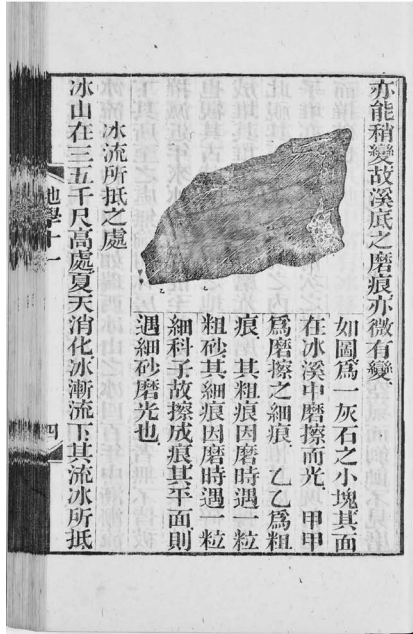 亦能稍變故溪底之磨痕亦微有變
如圖爲一灰石之小塊其面
在冰溪中磨擦而光　甲甲
爲磨擦之細痕　乙乙爲粗
痕　其粗痕因磨時遇一粒
粗砂其細痕因磨時遇一粒
細科子故擦成痕其平面則
遇細砂磨光也
冰流所抵之處
冰山在三五千尺高處夏天消化冰漸流下其流冰所抵
地學十一
四